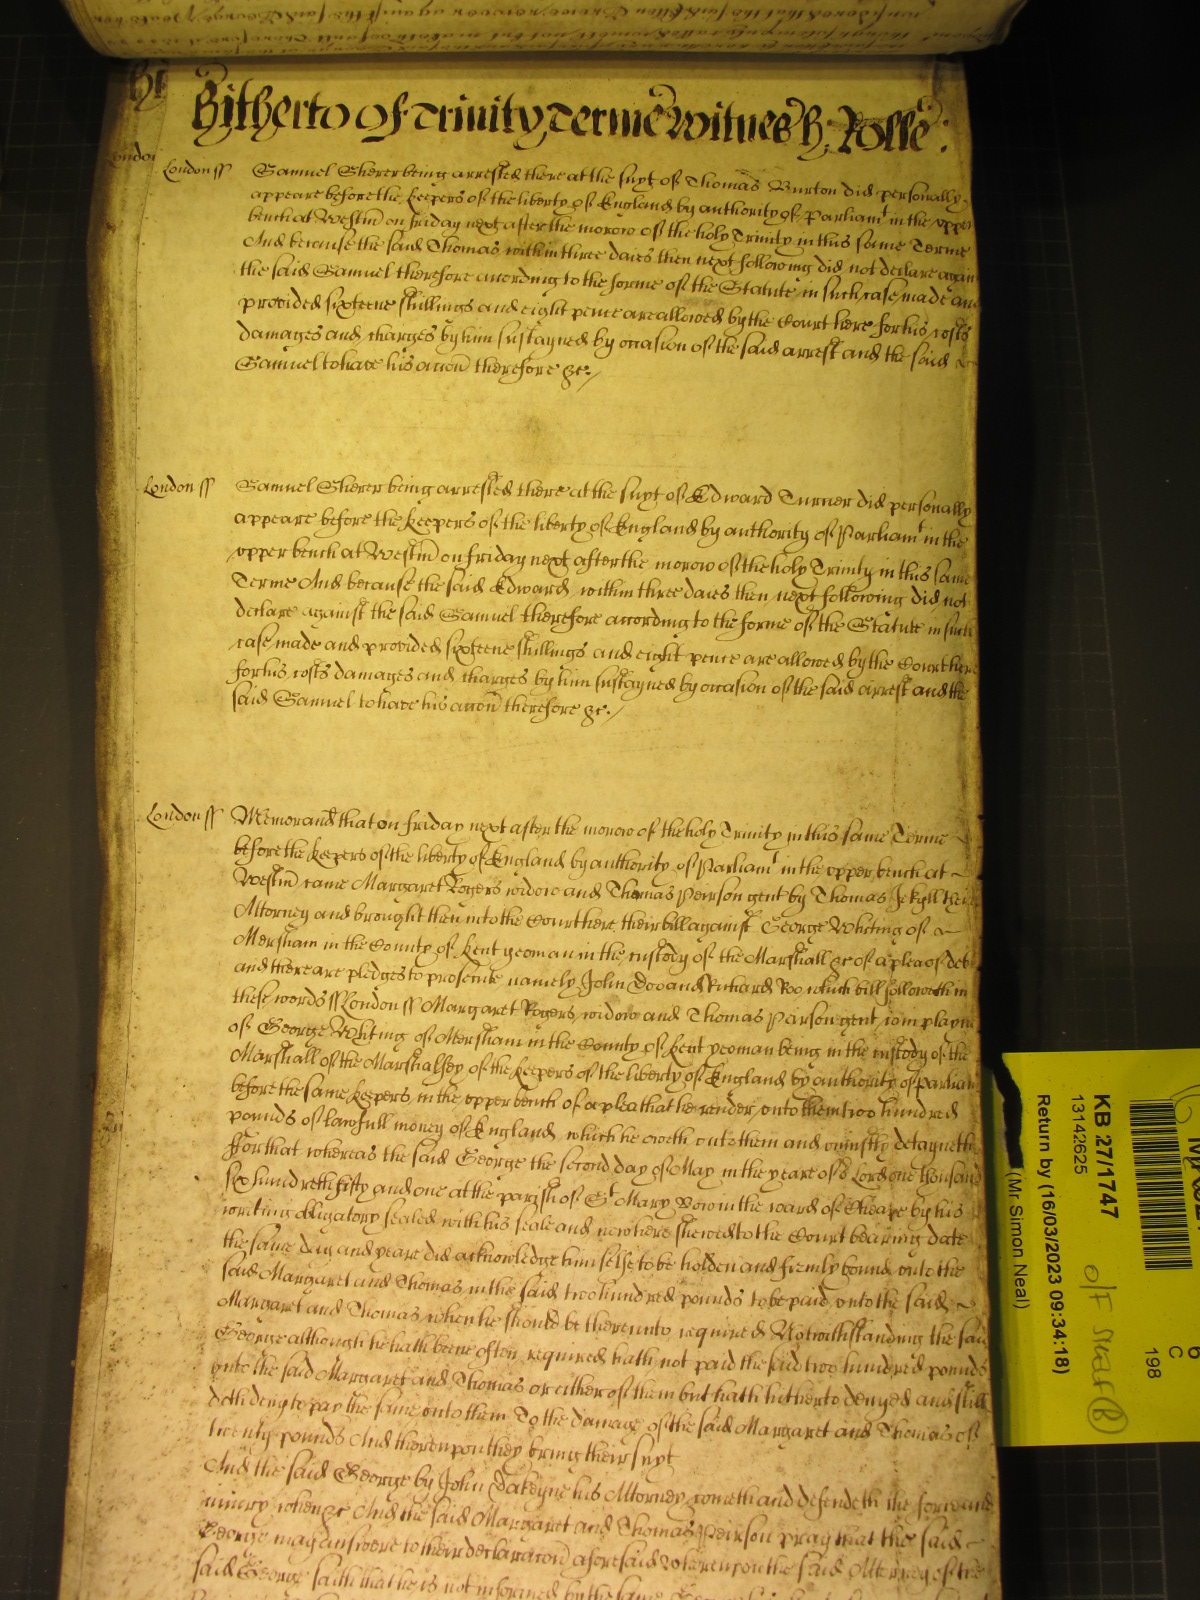 Hitherto of Trinity Terme Witnes H: Rolle:
London ss Samuel Sherer being arrested there at the suyt of Thomas Burton did personally
appeare before the keepers of the liberty of England by authority of Parliamt in the upper
bench at Westm on friday next after the morow of the holy Trinity in this same Terme
And because the said Thomas within three daies then next following did not declare again
the said Samuel therefore according to the forme of the Statute in such case made and
provided sixteene shillings and eight pence are allowed by the Court here for his costs
damages and charges by him sustayned by occasion of the said arrest and the said
Samuel to have his accon therefore &c:/
London ss Samuel Sherer being arrested there at the suyt of Edward Turner did personally
appeare before the keepers of the liberty of England by authority of Parliamt in the
upper bench at Westm on friday next after the morow of the holy Trinity in this same
Terme And because the said Edward within three daies then next following did not
declare against the said Samuel therefore according to the forme of the Statute in such
case made and provided sixteene shillings and eight pence are allowed by the Court here
for his costs damages and charges by him sustayned by occasion of the said arrest and the
said Samuel to have his accon therefore &c:/
London ss Memorand that on friday next after the morow of the holy Trinity in this same Terme
before the keepers of the liberty of England by authority of Parliamt in the upper bench at
Westm came Margaret Rogers widow and Thomas Peirson gent by Thomas Jekyll their
Attorney and brought then into the Court here their bill against George Whiting of
Mersham in the County of Kent yeoman in the custody of the Marshall &c of a plea of debt
and there are pledges to prosecute namely John Doo and Richard Roo which bill followeth in
these words ss London ss Margaret Rogers widow and Thomas Parson gent complayne
of George Whiting of Mersham in the County of Kent yeoman being in the custody of the
Marshall of the Marshalsey of the keepers of the liberty of England by authority of Parliam
before the same keepers in the upper bench of a plea that he render unto them two hundred
pounds of lawfull money of England which he oweth unto them and uniustly detayneth
ffor that whereas the said George the second day of May in the yeare of or Lord one thousand
six hundreth fifty and one at the parish of St Mary Bow in the ward of Cheape by his
writing obligatory sealed with his seale and now here shewed to the Court bearing date
the same day and yeare did acknowledge himselfe to be holden and firmly bound unto the
said Margaret and Thomas in the said two hundred pounds to be paid unto the said
Margaret and Thomas when he should be thereunto required Notwithstanding the said
George although he hath beene often required hath not paid the said two hundred pounds
unto the said Margaret and Thomas or either of them but hath hitherto denyed and still
doth deny to pay the same unto them To the damage of the said Margaret and Thomas of
twenty pounds And thereupon they bring their suyt
And the said George by John Dakeyne his Attorney cometh and defendeth the force and
iniury when &c And the said Margaret and Thomas Peirson pray that the said
George may answere to their declaracon aforesaid Whereupon the said Attorney of the
said George saith that he is not informed by the same
KB 27/1747
13142625
Return by (16/03/2023 09:34:18)
(Mr Simon Neal)
C
198
O/F